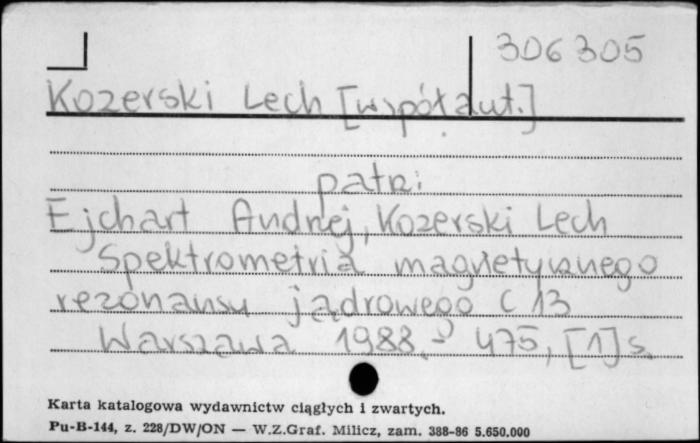 306305
Kozerski Lech [współaut.]
patrz:
Ejchart Andrzej, Kozerski Lech
Spektrometria magnetycznego
rezonansu jądrowego C 13
Warszawa 1988.- 475, [1] s.
Karta katalogowa wydawnictw ciągłych i zwartych.
Pu-B-144, z. 228/DW/ON — W.Z.Graf. Milicz, zam. 388-86 5.650.000